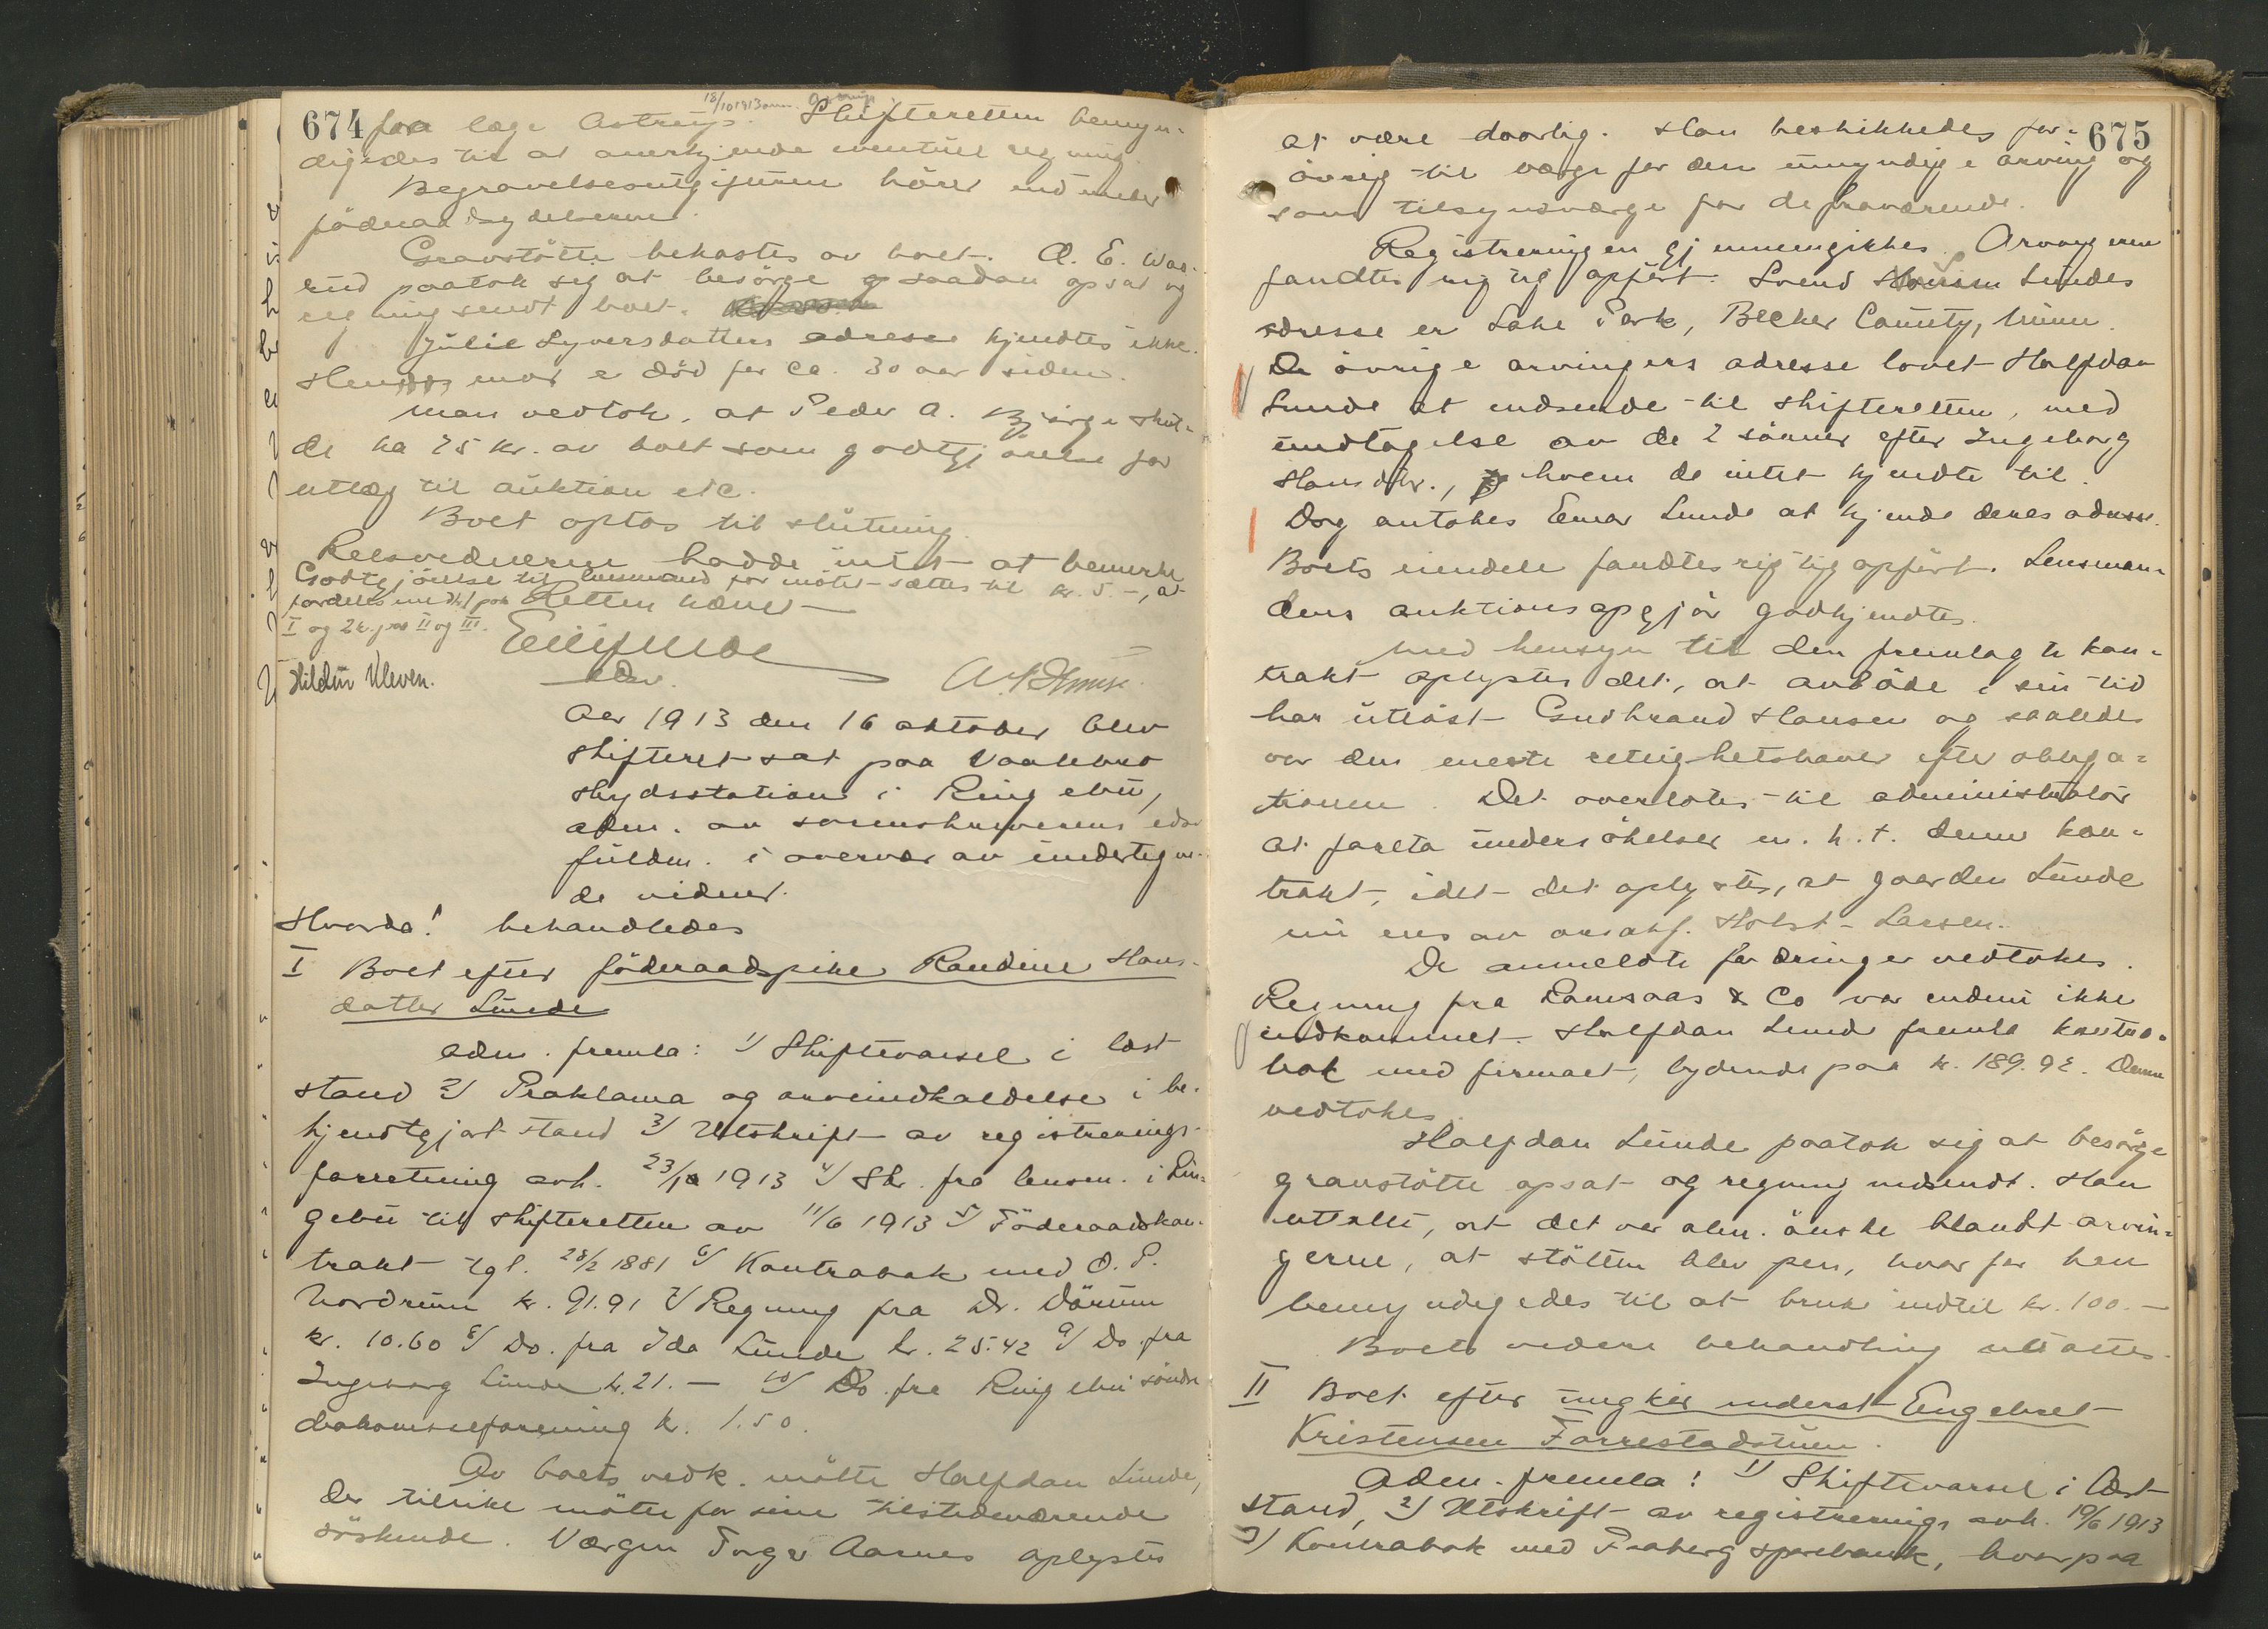 674
18/10 1913 anm.
fra læge Astrup. Skifteretten bemyn-
digedes til at anerkjende eventuel regning.
Begravelsesutgifterne hører ind under
föderaadsydelserne.
Gravstötte bekostes av boet. O. E. Waa-
rud paatok sig at besörge saadan opsat og
regning sendt boet.
Julie Syversdatters adresse kjendtes ikke.
Hendes mor er död for ca. 30 aar siden.
Man vedtok, at Peder A. Bjørge skul-
de ha 75 kr. av boet som godtgjörelse for
utlæg til auktion etc.
Boet optas til slutning.
Retsvidnerne hadde intet at bemerke
Godtgjörelse til lensmand for mötet sættes til kr. 5.-, at
fordeles med kr 1 paa
I og 2 kr. paa II og III.
Retten hævet
Hildur Kleven.
edsv.
Aar 1913 den 16 oktober blev
skifteret sat paa Vaalebro
skydsstation i Ringebu,
adm. av sorenskriverens edsv
fuldm. i overvær av undertegne-
de vidner.
Hvorda! behandledes
I Boet efter föderaadspike Randine Hans-
datter Lunde
Adm. fremla: 1/ Skiftevarsel i læst
stand 2/ Proklama og arveindkaldelse i be-
kjendtgjort stand 3/ Utskrift av registrerings-
forretning avh. 23/10 1913 4/ Skr. fra lensm. i Rin-
gebu til skifteretten av 11/6 1913 5/ Föderaadskon-
trakt tgl. 28/2 1881 6/ Kontrabok med O. P.
Nordrum kr. 91.91 7/ Regning fra Dr. Dörum
kr. 10.60 8/ Do. fra Ida Lunde kr. 25.42 9/ Do. fra
Ingeborg Lunde kr. 21.— 10/ Do. fra Ringebu söndre
avholdsforening kr. 1.50.
Av boets vedk. mötte Halfdan Lunde,
der tillike mötte for sine tilstedeværende
söskende. Værgen Torger Aarnes oplystes
675
at være daarlig. Han beskikkedes for-
övrig til værge for den umyndige arving og
som tilsynsværge for de fraværende.
Registreringen gjennemgikkes. Arvingerne
fandtes rigtig opfört. Svend Hansen Lundes
adresse er Lake Park, Becker County, Minn.
De övrige arvingers adresse lovet Halfdan
Lunde at indsende til skifteretten, med
undtagelse av de 2 sönner efter Ingeborg
Hansdtr., hvem de intet kjendte til.
Dog antokes Einar Lunde at kjende deres adresse.
Boets eiendele fandtes rigtig opfört. Lensman-
dens auktionsopgjör godkjendtes.
Med hensyn til den fremlagte kon-
trakt oplystes det, at avdöde i sin tid
har utlöst Gudbrand Hansen og saaledes
var den eneste rettighetshaver efter obliga-
tionen. Det overlotes til administrator
at foreta undersökelser m. h. t. denne kon-
trakt, idet det oplystes, at gaarden Lunde
nu eies av o.r.sakf. Holst-Larsen.
De anmeldte fordringer vedtokes.
Regning fra Ramsaas & Co var endnu ikke
indkommet. Halfdan Lunde fremla kontra-
bok med firmaet, lydende paa kr. 189.92. Denne
vedtokes.
Halfdan Lunde paatok sig at besörge
gravstötte opsat og regning indsendt. Han
uttalte, at det var alm. önske blandt arvin-
gerne, at stötten blev pen, hvorfor han
bemyndigedes til at bruke indtil kr. 100.—
Boets videre behandling utsattes.
II Boet efter ungkar inderst Engebret
Kristensen Forrestadstuen.
Adm. fremla: 1/ Skiftevarsel i læst
stand, 2/ Utskrift av registrerings avh. 19/6 1913
3/ Kontrabok med Faaberg sparebank, hvorpaa